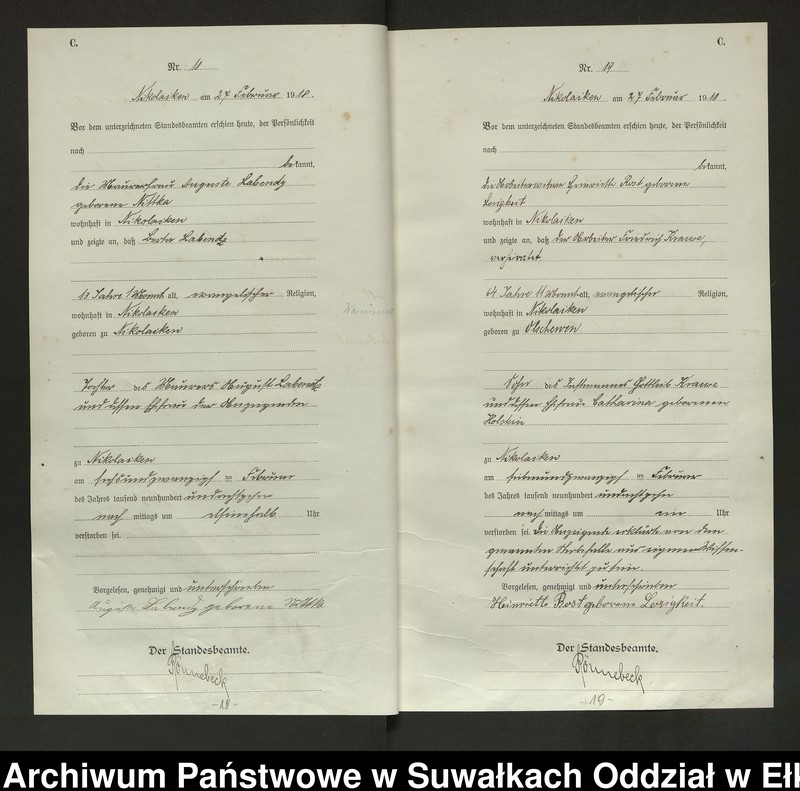 C.
Nr. 18
Nikolaiken am 27 Februar 1918.
Vor dem unterzeichneten Standesbeamten erschien heute, der Persönlichkeit
nach
bekannt,
die Maurerfrau Auguste Labendz
geborene Nittka
wohnhaft in Nikolaiken
und zeigte an, daß Labendz
Jahre 1 Monat alt, evangelischer Religion,
wohnhaft in Nikolaiken
geboren zu Nikolaiken
Tochter des Maurers August Labendz
und dessen Ehefrau der Anzeigenden
zu Nikolaiken
am sechsundzwanzigsten Februar
des Jahres tausend neunhundert undachtzehn
nach mittags um Uhr
verstorben sei.
Vorgelesen, genehmigt und unterschrieben
Auguste Labendz geborene Nittka
Der Standesbeamte.
Pönnebeck
-18-
C.
Nr. 19
Nikolaiken am 27 Februar 1918.
Vor dem unterzeichneten Standesbeamten erschien heute, der Persönlichkeit
nach
bekannt,
die Arbeiterwitwe Henriette Rost geborene
Losigkeit
wohnhaft in Nikolaiken
und zeigte an, daß der Arbeiter Friedrich Krause,
verheiratet
64 Jahre 11 Monat alt, evangelischer Religion,
wohnhaft in Nikolaiken
geboren zu Olschewen
Sohn des Instmannes Gottlieb Krause
und dessen Ehefrau Catharina geborenen
Holstein
zu Nikolaiken
am siebenundzwanzigsten Februar
des Jahres tausend neunhundert undachtzehn
nach mittags um ein Uhr
verstorben sei. Die Anzeigende erklärte von dem
genannten Sterbefalle aus eigener Wissen-
schaft unterrichtet zu sein.
Vorgelesen, genehmigt und unterschrieben
Heinriette Rost geborene Losigkeit.
Der Standesbeamte.
Pönnebeck
-19-
Archiwum Państwowe w Suwałkach Oddział w Ełk